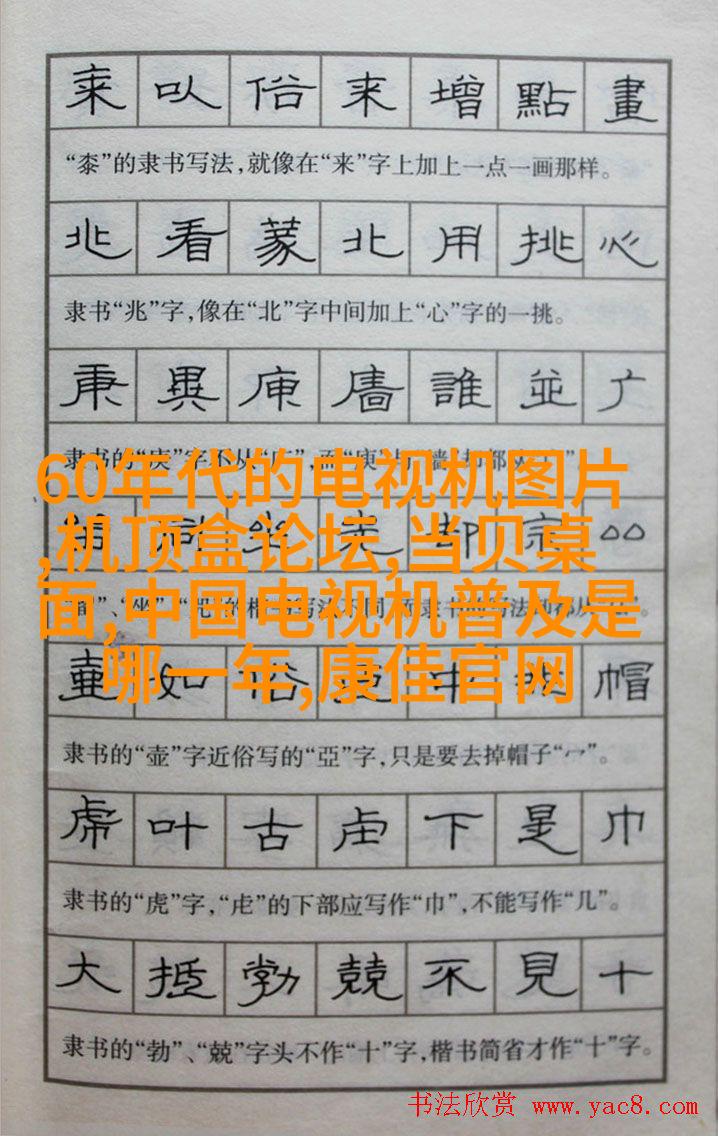 来 㕥 俗 来 增 點 畫
“桼”的隶书写法，就像在“来”字上加上一点一画那样。
兆 看 篆 北 用 挑 心
隶书“兆”字，像在“北”字中间加上“心”字的一挑。
庚 異 庾 廧 誰 並 广
隶书的“庚”字不从“广”，而“庾”与“墙”却都从“广”。
60年代的电视机图片
,机顶盒论坛,当贝桌
面,中国电视机普及是
哪一年,康佳官网
隶书的“壶”字近俗写的“亞”字，只是要去掉帽子“宀”。
虎 叶 古 虍 下 是 巾
隶书的“虎”字，“虍”的下部应写作“巾”，不能写作“几”。
大 抵 勃 兢 不 見 十
隶书的“勃”、“兢”字头不作“十”字，楷书简省才作“十”字。
书法欣赏 www.yac8.com